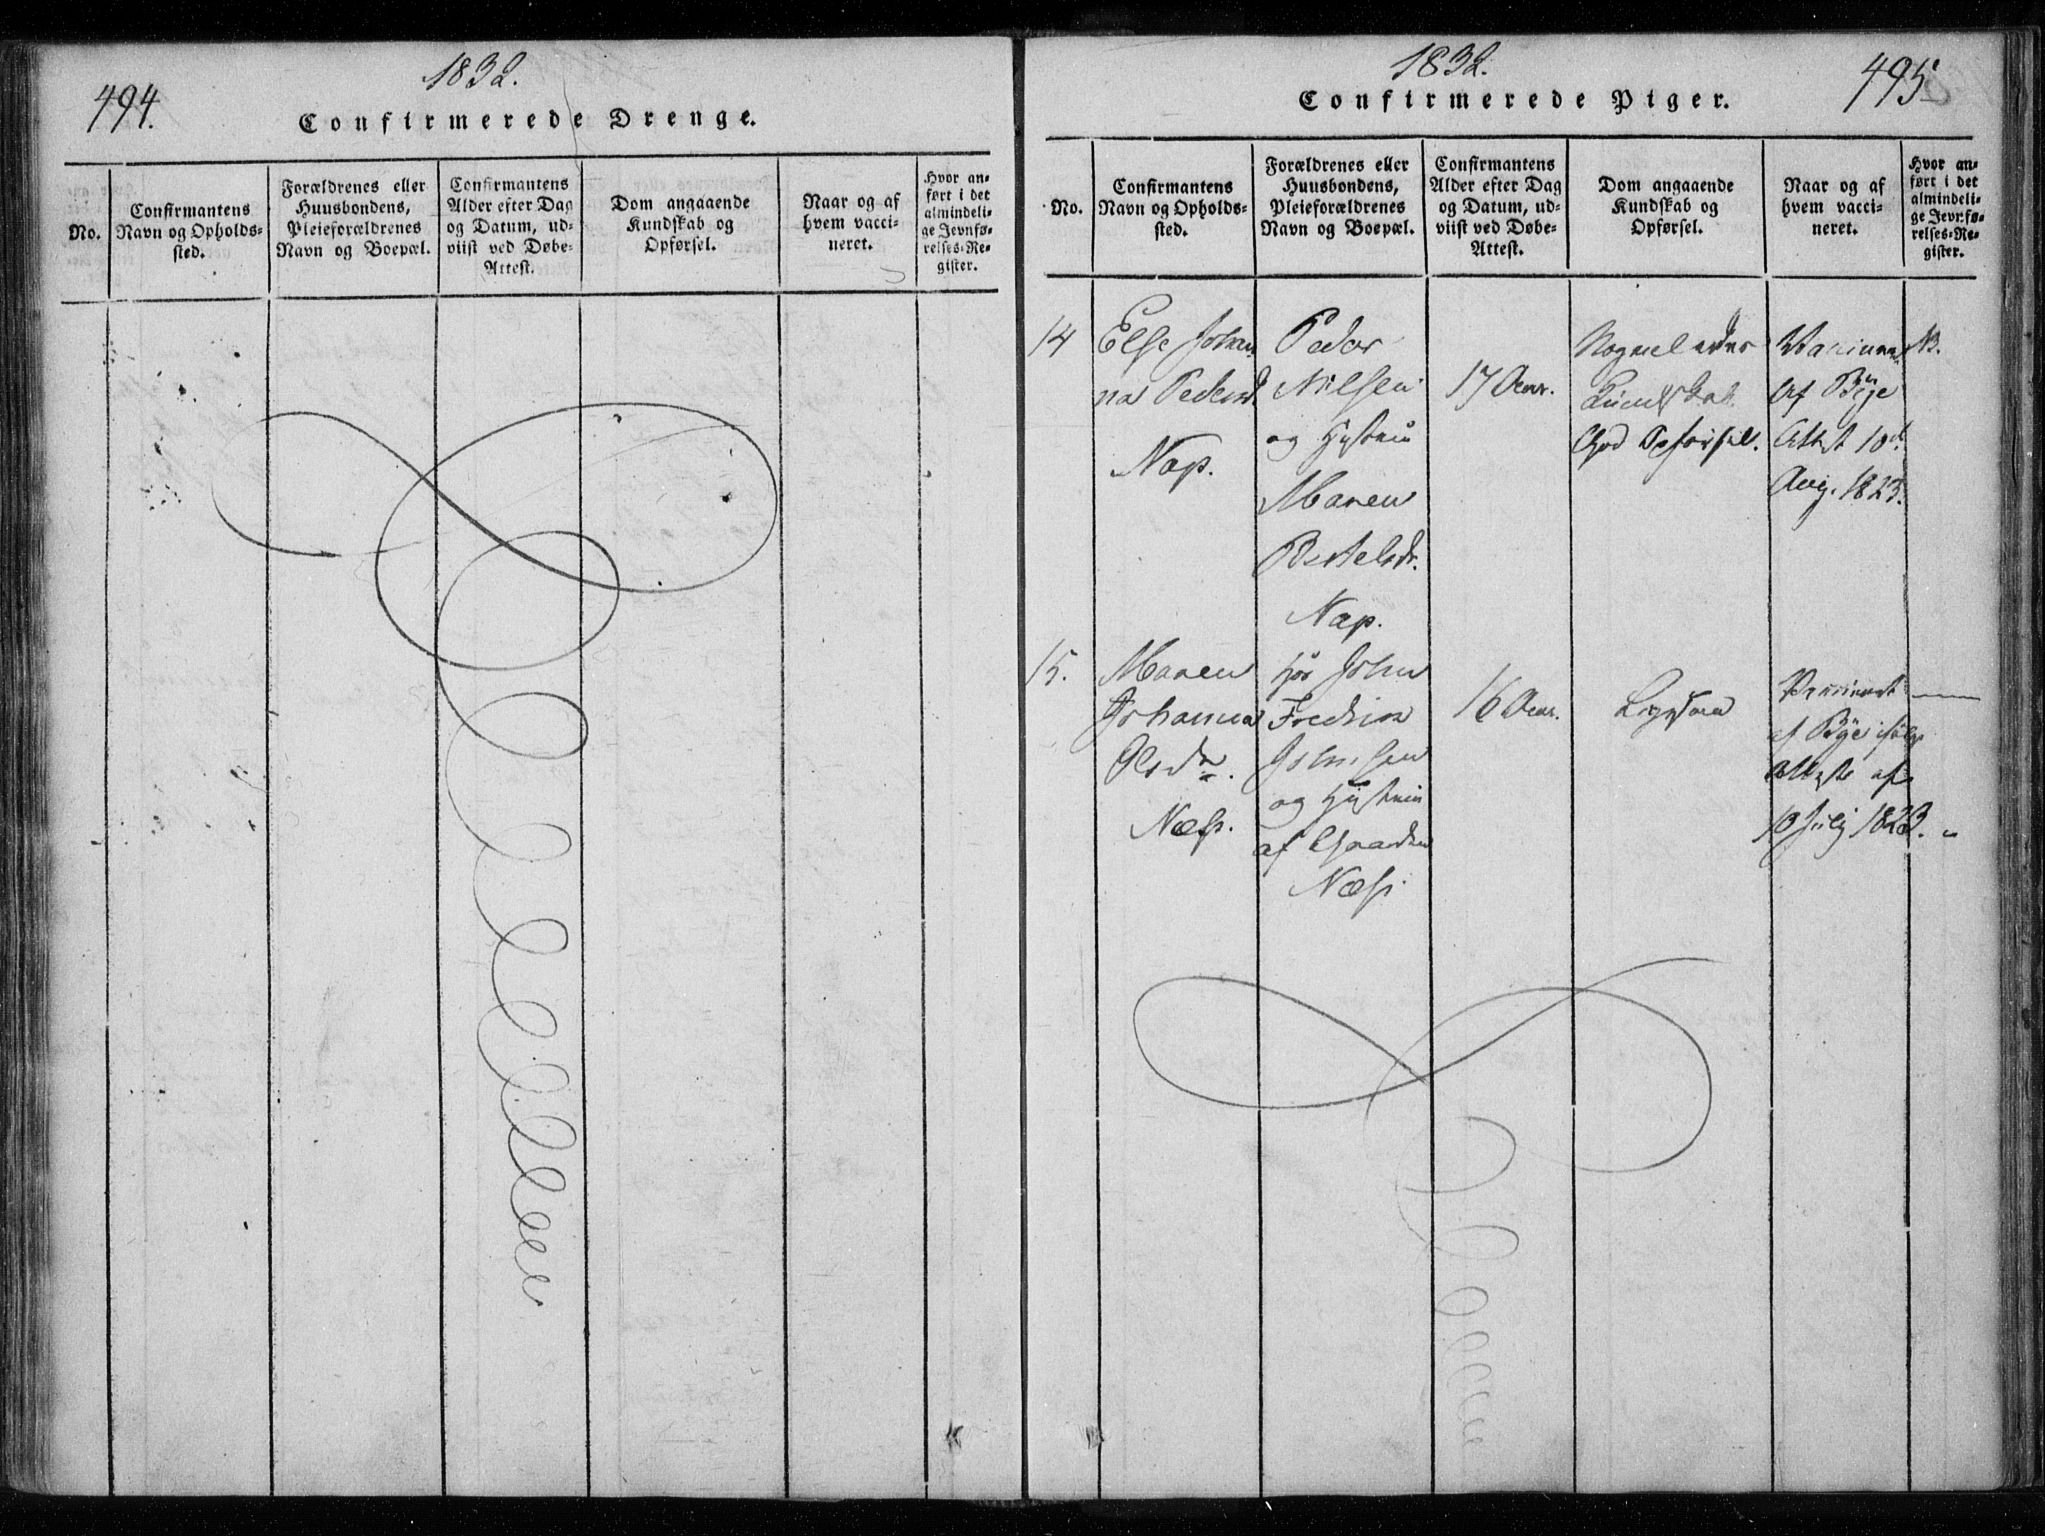 494.
1832.
Confirmerede Drenge.
No.
Confirmantens
Navn og Opholds-
sted.
Forældrenes eller
Huusbondens,
Pleieforældrenes
Navn og Boepæl.
Confirmantens
Alder efter Dag
og Datum, ud-
viist ved Døbe-
Attest.
Dom angaaende
Kundskab og
Opførsel.
Naar og af
hvem vacci-
neret.
Hvor an-
ført i det
almindeli-
ge Jevnfø-
relses-Re-
gister.
1832.
495
Confirmerede Piger.
No.
Confirmantens
Navn og Opholds-
sted.
Forældrenes eller
Huusbondens,
Pleieforældrenes
Navn og Boepæl.
Confirmantens
Alder efter Dag
og Datum, ud-
viist ved Døbe-
Attest.
Dom angaaende
Kundskab og
Opførsel.
Naar og af
hvem vacci-
neret.
Hvor an-
ført i det
almindeli-
ge Jevnfø-
relses-Re-
gister.
14
Else Johan
na Pedersd.
Nap.
Peder
Nilsen
og Hustru
Maren
Bertelsdr.
Nap.
17 Aar.
Kundskab.
God Opførsel.
af Bÿe
Attest 10d
Aug. 1823.
15.
Maren
Johanna
Olsdr.
Næss.
hos John
Fredrik
Johnsen
og Hustru
af Gaarden
Næss.
16 Aar.
Ligesaa
Vaccineret
af Bÿe ifølge
Attest af
10 Julÿ 1823.